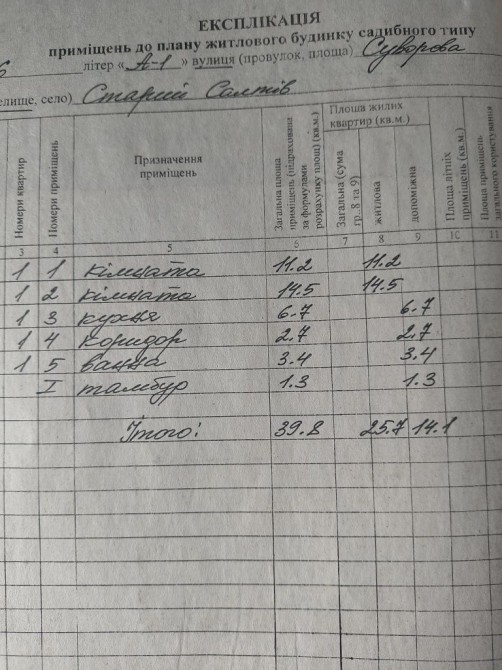 ЕКСПЛІКАЦІЯ
приміщень до плану житлового будинку садибного типу
літер « А-1 » вулиця (провулок, площа) Суворова
елище, село) Старий Салтів
Номери квартир
Номери приміщень
Призначення приміщень
Загальна площа приміщень (підрахована за формулами розрахунку площ) (кв.м.)
Площа жилих квартир (кв.м.)
Загальна (сума гр. 8 та 9)
житлова
допоміжна
Площа літніх приміщень (кв.м.)
Площа приміщень загального користування
3 4 5 6 7 8 9 10 11
1 1 кімната 11.2 11.2
1 2 кімната 14.5 14.5
1 3 кухня 6.7 6.7
1 4 коридор 2.7 2.7
1 5 ванна 3.4 3.4
I тамбур 1.3 1.3
Ітого: 39.8 25.7 14.1